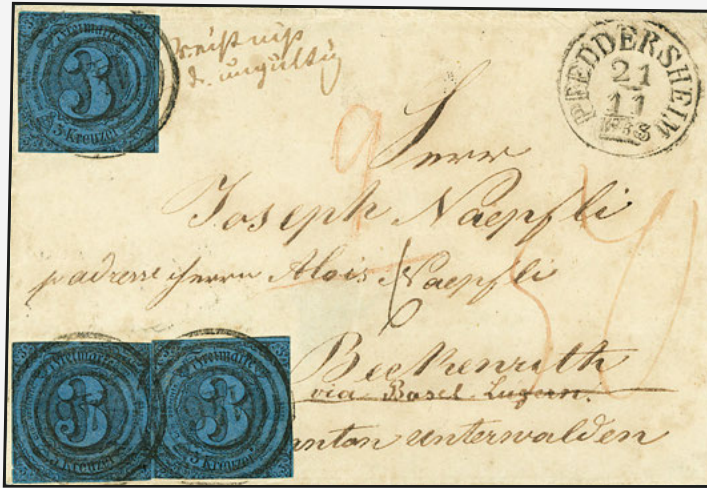 Freimarke
3
3 Kreuzer
ungültig
PFEDDERSHEIM
21
11
9
Herrn
Joseph Naepfli
p adresse Herrn Alois Naepfli
6
Beckenrith
via Basel-Luzern.
Canton Unterwalden
Freimarke
3
3 Kreuzer
Freimarke
3
3 Kreuzer